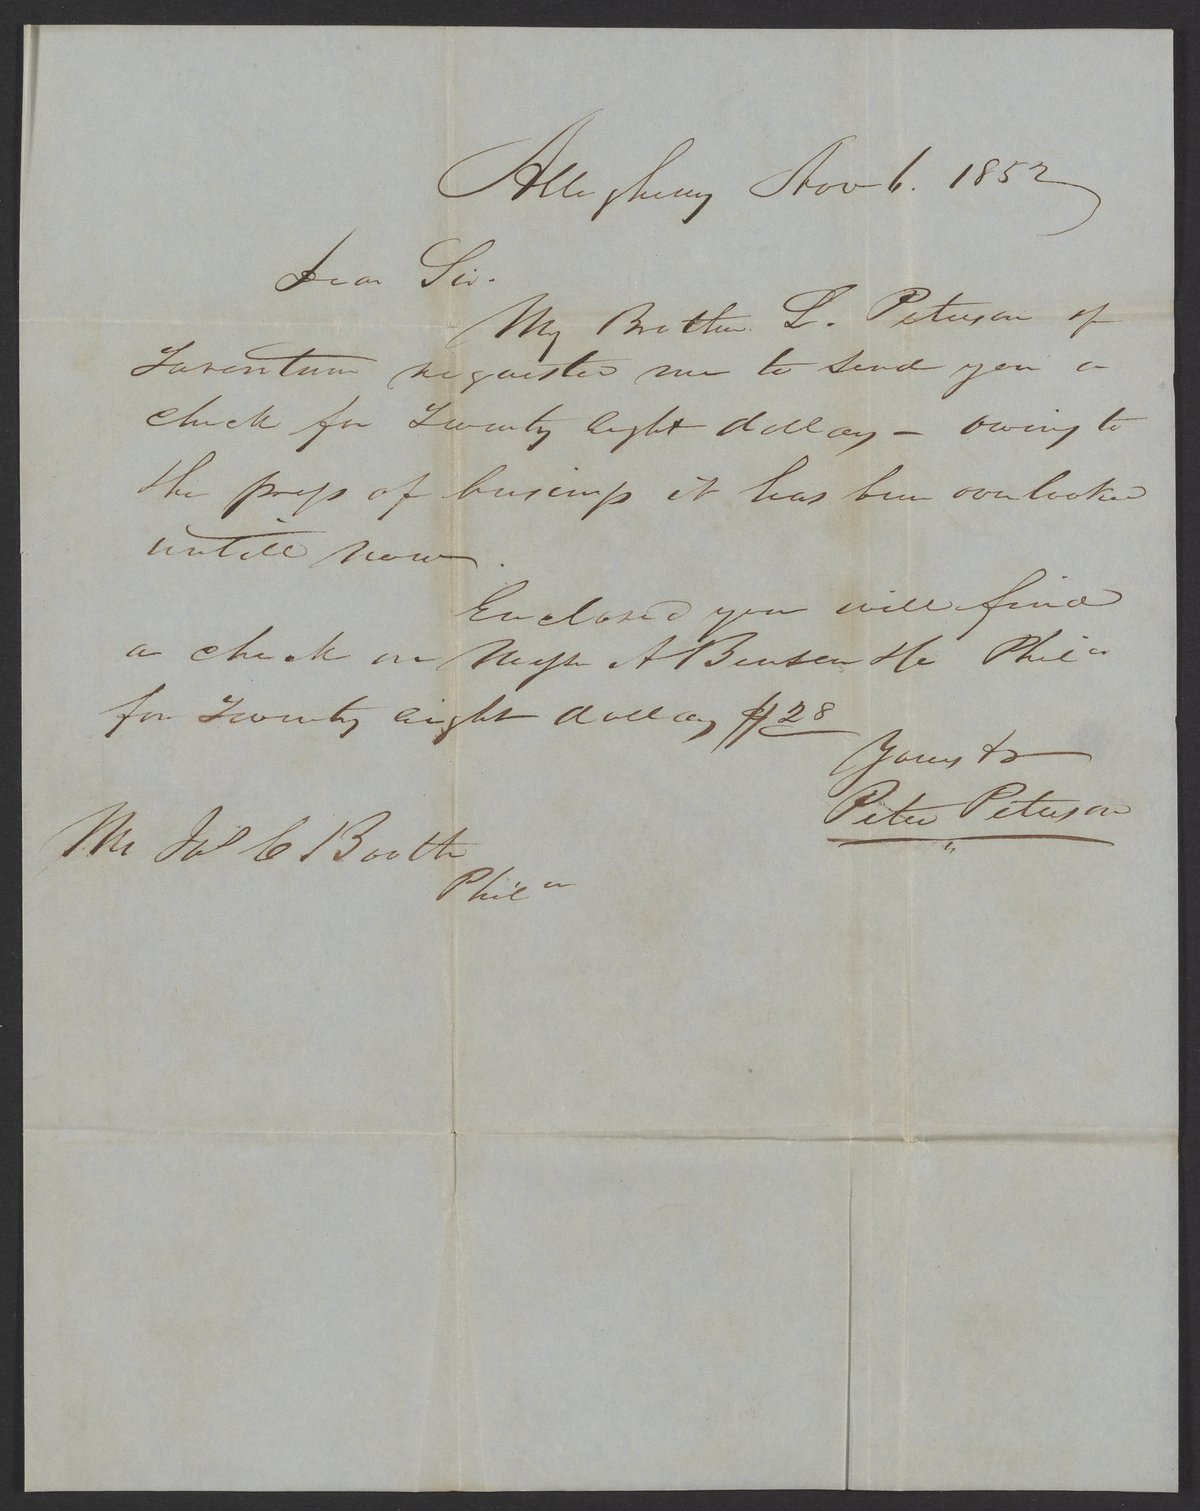 Allegheny Nov 6. 1852
Dear Sir.
My Brother L. Peterson of
Tarentum requested me to send you a
check for Twenty eight dollars – owing to
the press of business it has been overlooked
untill now.
Enclosed you will find
a check on Messrs A Benson &Co Phila
for Twenty eight dollars $28
Yours &c
Peter Peterson
Mr Jas C Booth
Phila